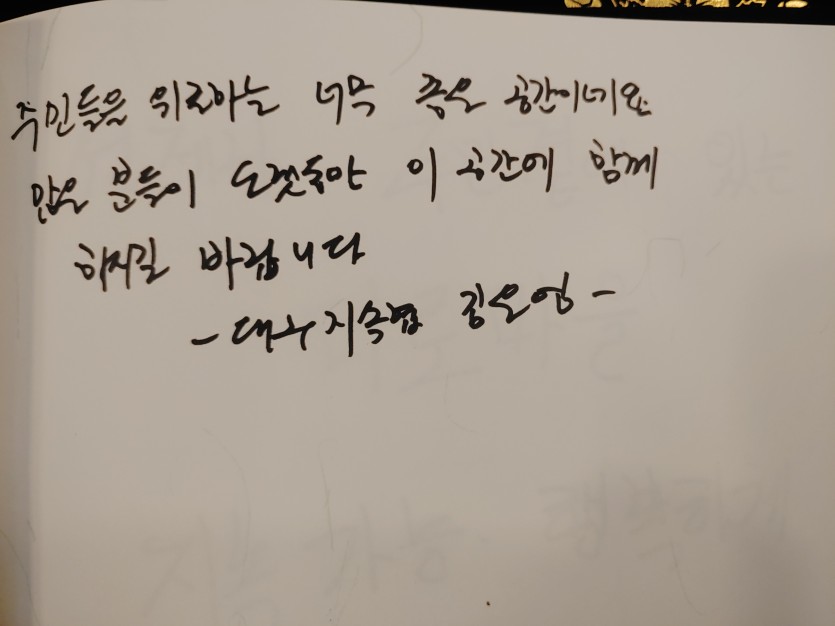 주민들을 위로하는 너무 좋은 공간이네요.
많은 분들이 오랫동안 이 공간에 함께
하시길 바랍니다
- 대구지속협 김은영 -